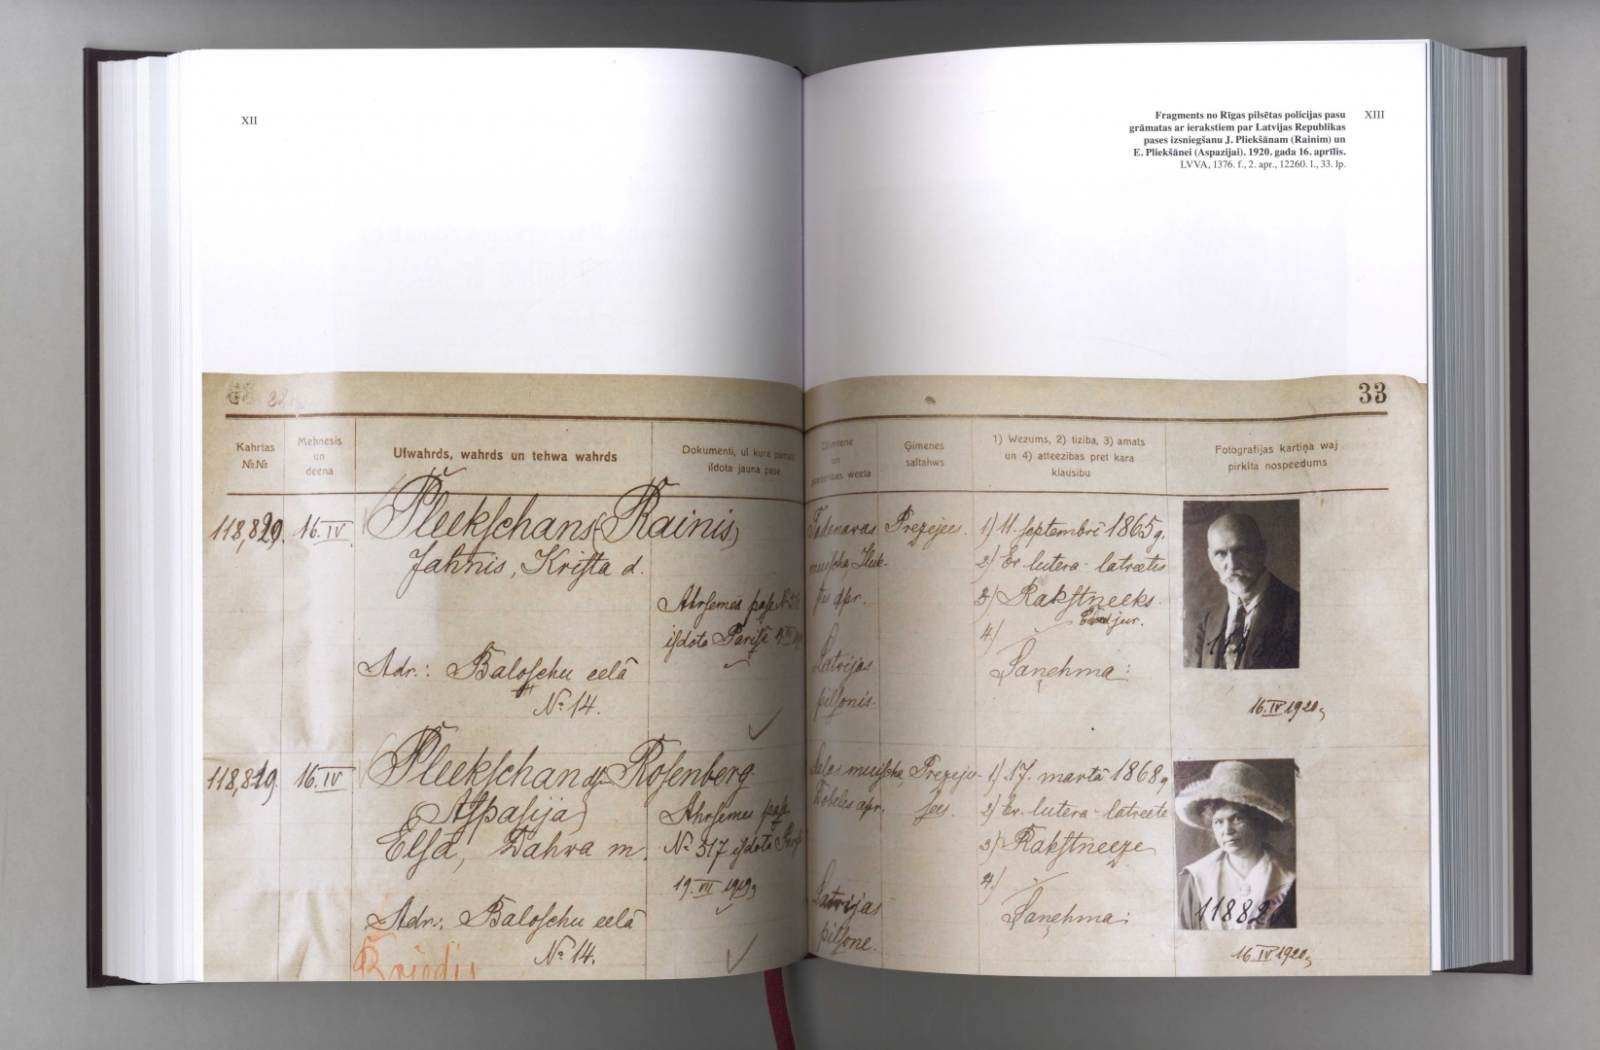 XII
XIII
Fragments no Rīgas pilsētas policijas pasu
grāmatas ar ierakstiem par Latvijas Republikas
pases izsniegšanu J. Pliekšānam (Rainim) un
E. Pliekšānei (Aspazijai). 1920. gada 16. aprīlis.
LVVA, 1376. f., 2. apr., 12260. l., 33. lp.
33
Kahrtas
№№
Mehnesis
un
deena
Uſwahrds, wahrds un tehwa wahrds
Dokumenti, uſ kura pamata
iſdota jauna pase
Dſimtene
un
weeta
Ģimenes
saltahws
1) Wezums, 2) tiziba, 3) amats
un 4) atteezibas pret kara
klausibu
Fotografijas kartiņa waj
pirkſta nospeedums
118,829.
16.IV
Pleekſchans (Rainis)
Jahnis, Kriſta d.
Ahrſemes paſe
iſdota Parisē
Adr.: Baloſchu eelā
№ 14.
muiſcha, Iluk-
ſtes apr.
Latvijas
pilſonis.
Prezejees.
1) 11. ſeptembrī 1865 g.
2) Ev. lutera - latveetis
3) Rakſtneeks
jur.
4)
Saņehma:
16.IV 1920 g
118,819.
16.IV
Pleekſchan dſ. Roſenberg
(Aſpaſija)
Elſa, Dahva m.
Ahrſemes paſe
№ 517 iſdota
19.VII 1919 g
Adr.: Baloſchu eelā
№ 14.
muiſcha,
Dobeles apr.
Latvijas
pilſone.
Prezeju-
ſees.
1) 17. martā 1868 g
2) Ev. lutera - latveete
3) Rakſtneeze
4)
Saņehma:
1188
16 IV 1920 g